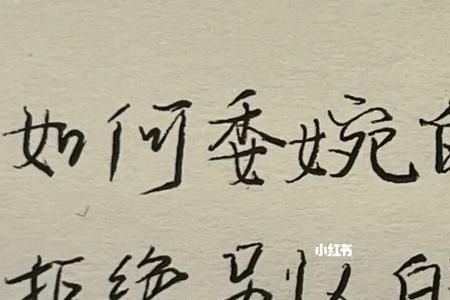 如何委婉
小红书
拒绝别人